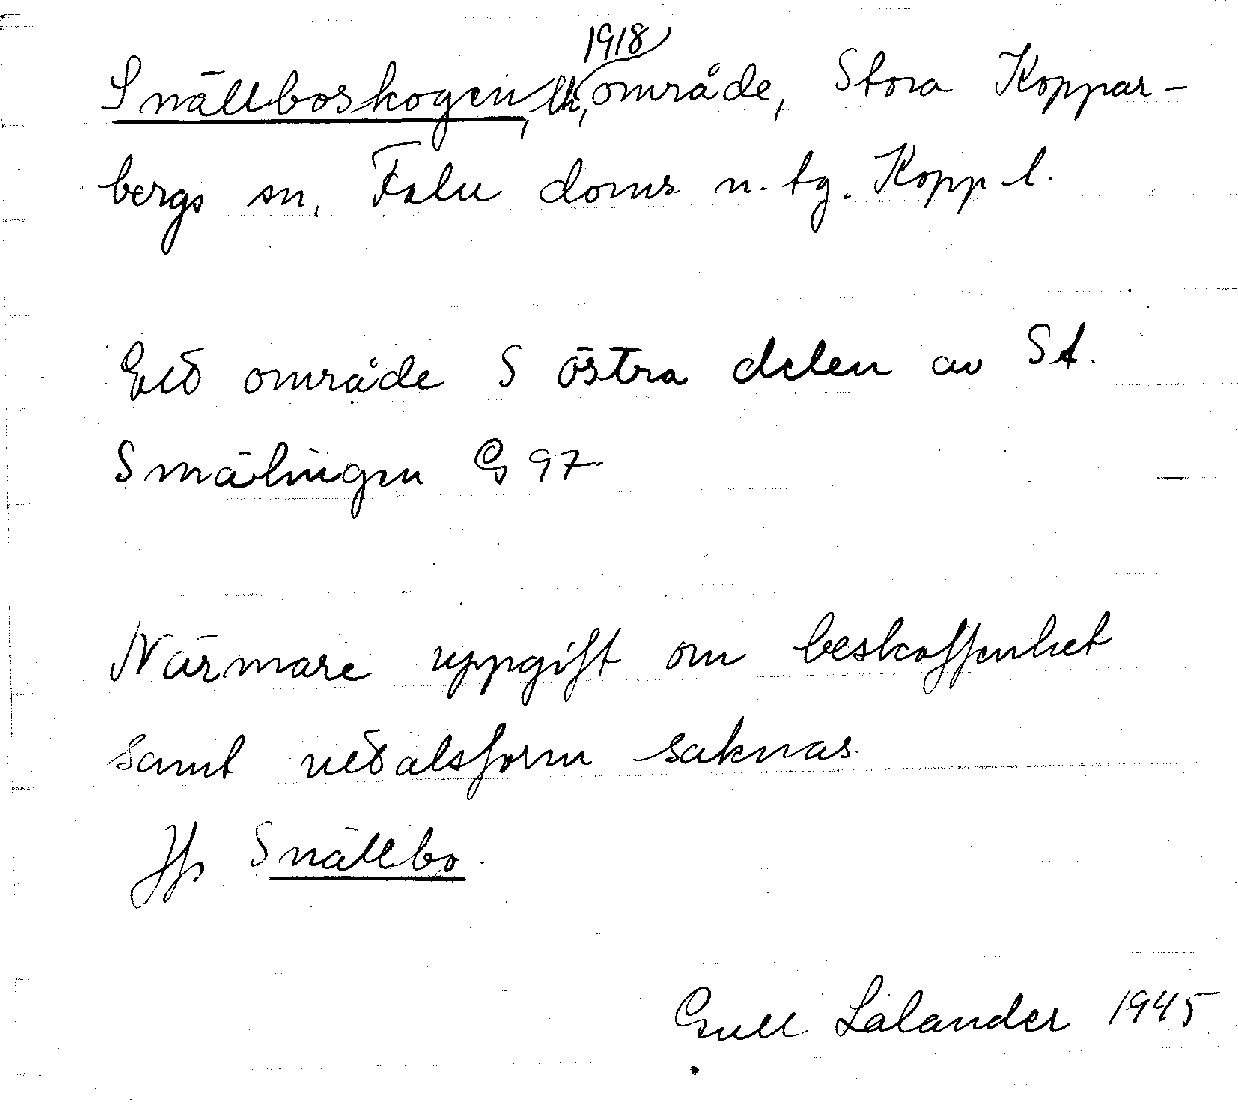 1918
Snällboskogen, Ek, område, Stora Koppar-
bergs sn, Falu doms n. tg. Kopp l.
Ett område S östra delen av St.
Smälingen G 97
Närmare uppgift om beskaffenhet
samt uttalsform saknas.
Jfr Snällbo.
Gull Lalander 1945